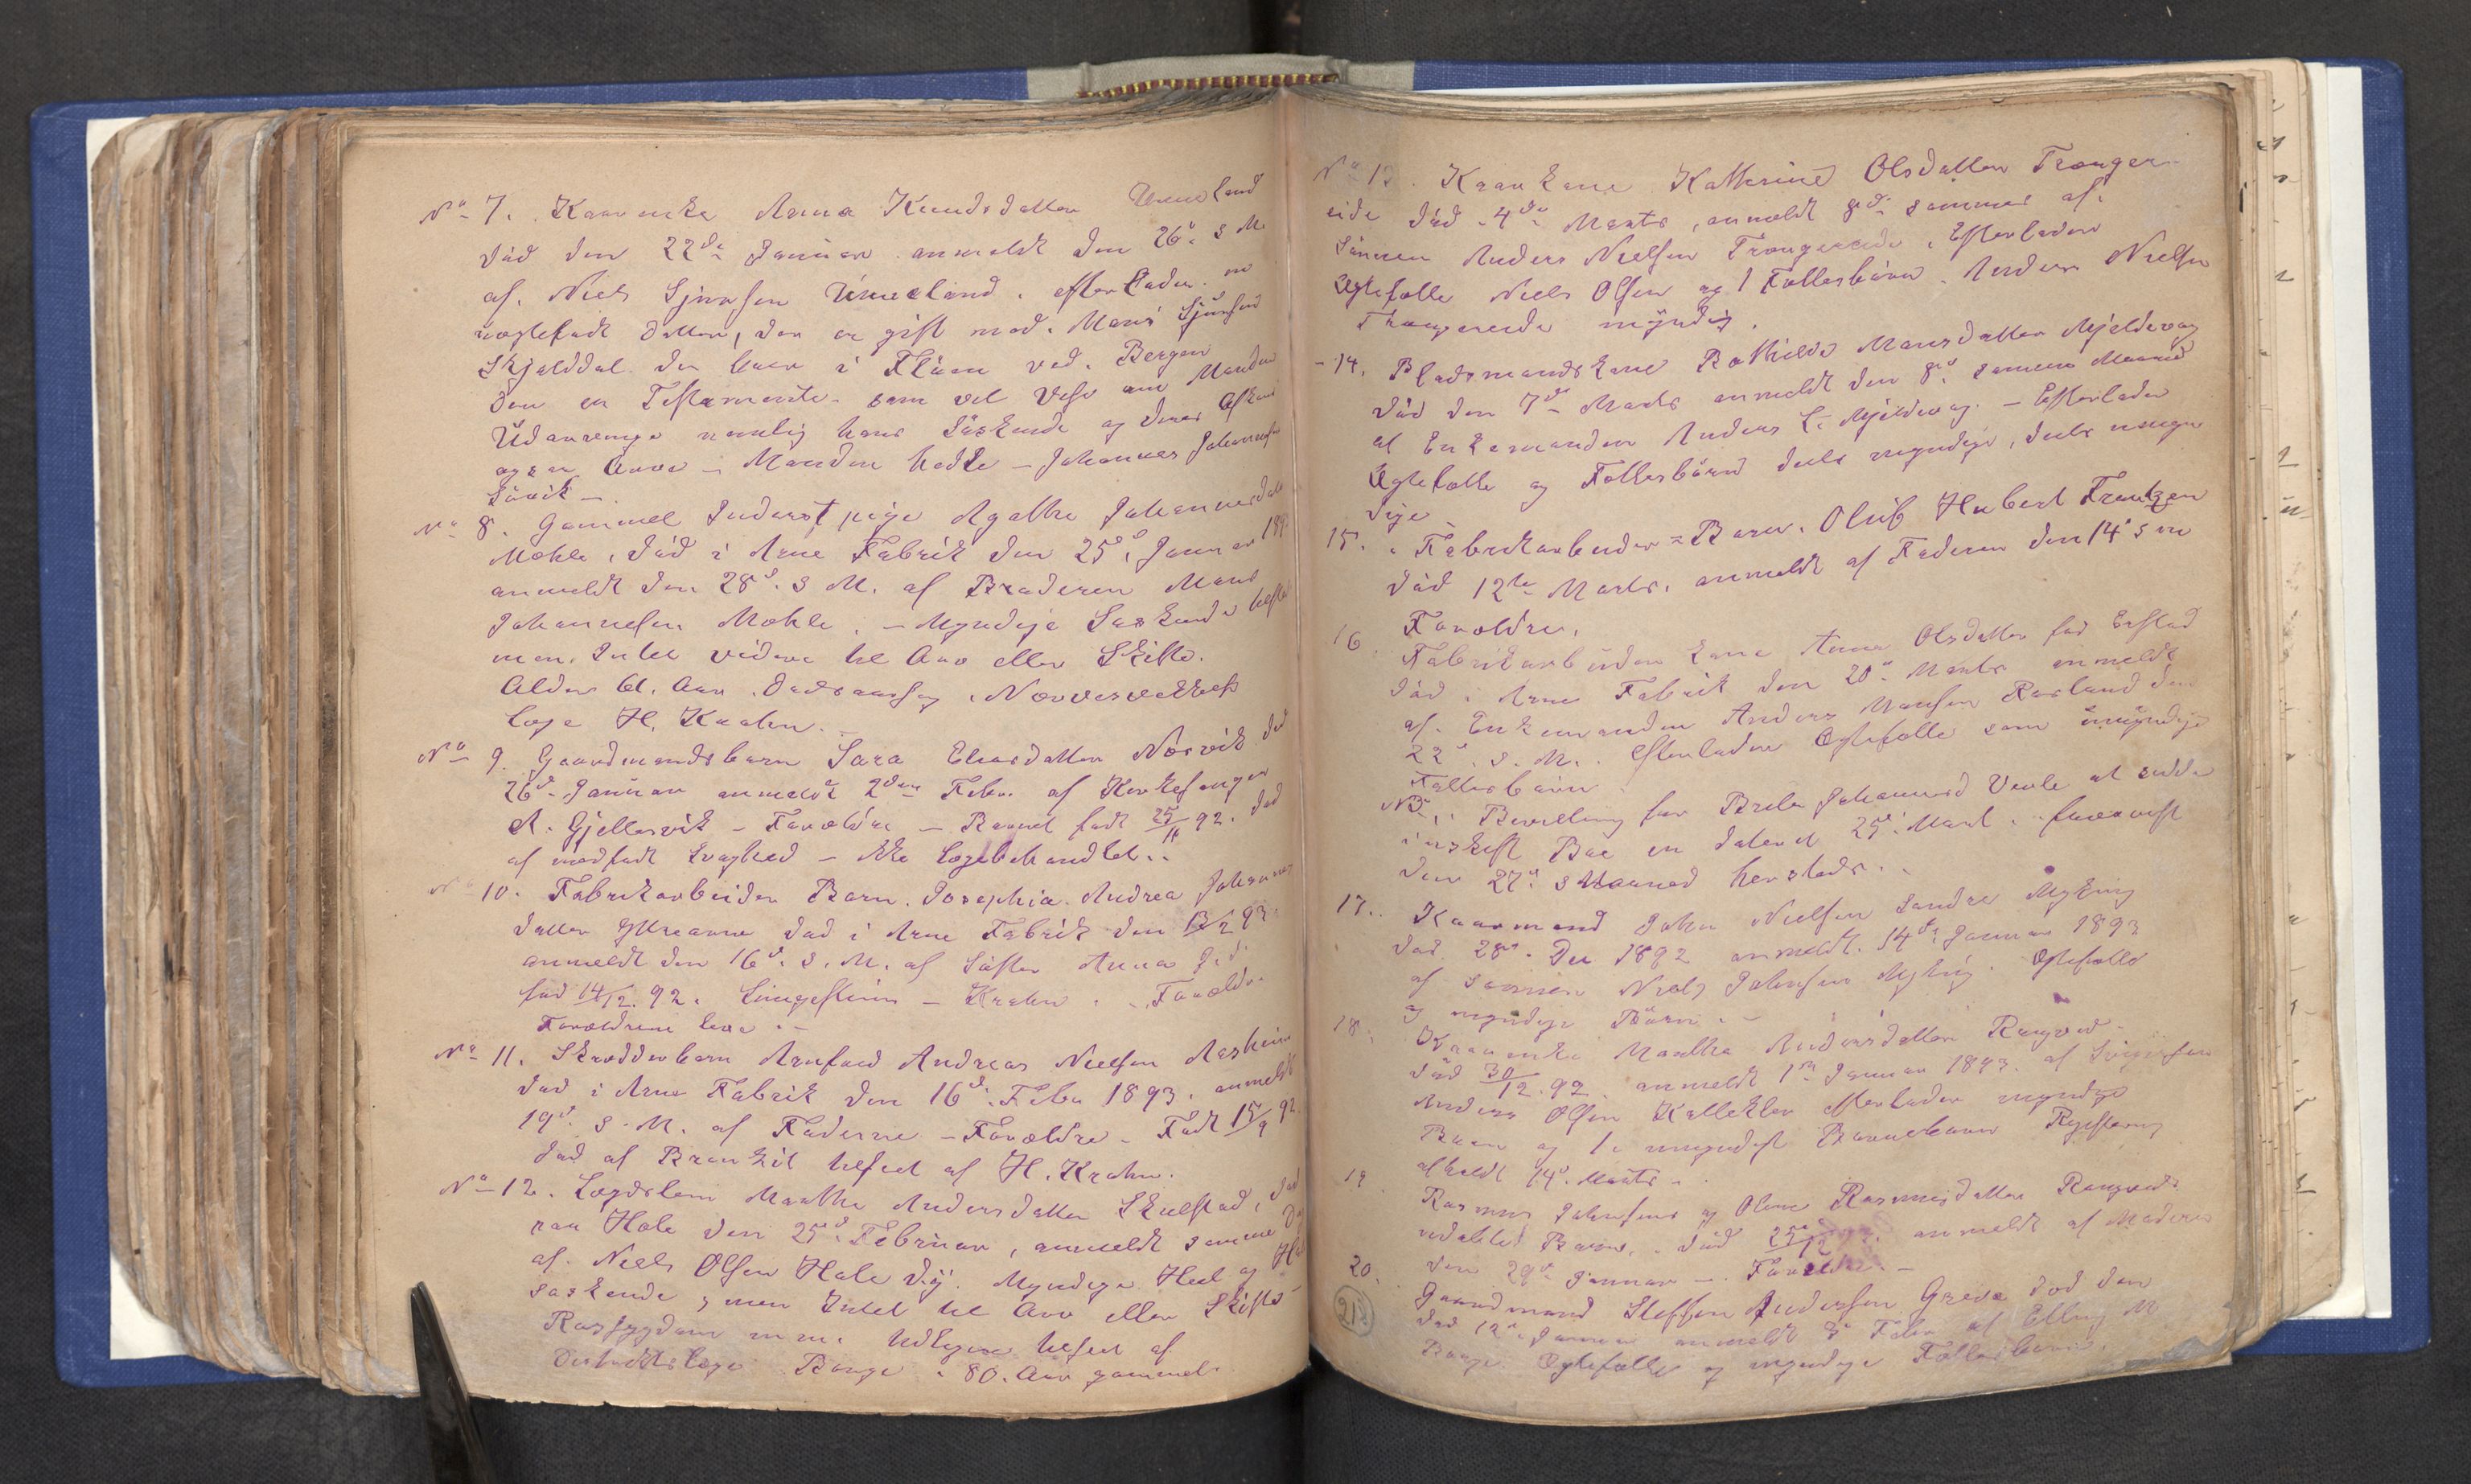 No 7. Kaarenke Anna Knudsdatter Unneland
död den 22de Januar anmeldt den 26de s M.
af. Niels Sjursen Unneland. efterlader en
uægtefødt datter, der er gift med. Mons Sjursen
Skjelddal der boer i Flåen ved. Bergen
den er Testamente. som vel viser om Manden
Udarvinge nemlig hans Söskende og deres
ogsaa Arve – Manden hedte – Johannes Johannesen
Sörvik –.
No 8. Gammel Inderst pige Agathe Johannesdatter
Mohle, död i Arne Fabrik den 25de Januar 189
anmeldt den 28de s M. af Broderen Mons
Johannesen Mohle. – Myndige Söskende
men Intet videre til Arv eller Skifte.
Alder 61. Aar. Dødsaarsag. Nervesvækkelse
Læge H. Krahn.
No 9. Gaardmandsbarn Sara Elnasdatter Nörvik död
26de Januar anmeldt 2den Febr. af Kirkesanger
A. Gjellesvik – Forældre – Barnet født 25/11 92. död
af medfødt svaghed – ikke Lægebehandlet..
No 10. Fabrikarbeider Barn. Josephia Andrea Johannes
datter Ytrearne död i Arne Fabrik den 13/2 93
anmeldt den 16de s. M. af Söster Anna
fød 14/12. 92. – Krahn. – Forældre
Forældrene leve. –
No 11. Skredderbarn Arnford Andreas Nielsen Aasheim
död i Arne Fabrik den 16de Febr 1893. anmeldt
19de s. M. af Faderne – Forældre – Född 15/9 92.
död af Bronkit tilseet af H. Krahn.
No 12. Lægdslem Marthe Andersdatter Skulstad, död
paa Hole den 25de Februar, anmeldt samme Dag
af. Niels Olsen Hole Myndige Heel og
söskende, men Intet til Arv eller Skifte –
tilseet af
Distriktslæge Bonge. 80. Aar gammel.
No 13. Kaarkone Katherine Olsdatter Trænger
eide död 4de Marts, anmeldt 8de sammes af.
Sönnen Anders Nielsen Trængereide. Efterlader
Ægtefælle Niels Olsen og 1 Fællesbarn. Anders Nielsen
Trængereide myndig.
– 14. Pladsmandskone Bothilde Monsdatter Mjeldevag
död den 7de Marts anmeldt den 8de samme Maaned
af Enkemanden Anders L. Mjeldevag. – Efterlader
Ægtefælle og Fællesbörn deels myndige, deels umyn
dige
15. Fabrikarbeider = Barn. Oluf Hubert Frantzen
död 12te Marts. anmeldt af Faderen den 14de s m
Forældre.
16 Fabrikarbeider kone Anna Olsdatter fød
död i Arne Fabrik den 20de Marts anmeldt
af. Enkemanden Anders Monsen Rosland den
22de. s. M. Efterlader Ægtefælle som umyndige
Fællesbörn.
NB. Bevilling for Brita Johannesd Veule at sidde
i uskift Boe er dateret 25de Mart. forevist
den 27de s Maaned herstads..
17. Kaarmand John Nielsen söndre Myking
död 28de Dec 1892 anmeldt. 14de Januar 1893
af sønnen Niels Johnsen Myking. Ægtefælle
og myndige Börn. –
18. Kaarenke Marthe Andersdatter
död 30/12. 92. anmeldt 1ste Januar 1893. af Svigersøn
Anders Olsen Kallekler efterlader myndige
Börn og 1. umyndigt Barnebarn
afholdt 14de Marts –
19. Rasmus Johnsens og Oline Rasmusdatter
udøbte Barn. död 25/12. anmeldt af Moderen
den 29de Januar –. Forældre. –
20. Gaardmand Steffen Andersen Greve død den
död 12te Januar anmeldt 3de Febr af Elling M
Ægtefælle og myndige Fællesbörn.
21